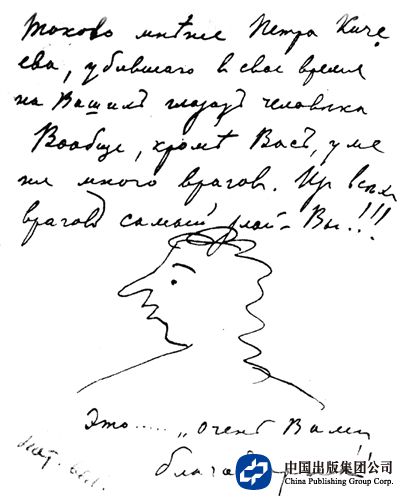 Таково мнѣніе Петра Киче
ева, убившаго в свое время
на Вашихъ глазахъ человѣка
Вообще, кромѣ Васъ, у ме
ня много врагов. Из всѣх
враговъ самый злой - Вы!!!
Это..... „очень Вами
中国出版集团公司
China Publishing Group Corp.